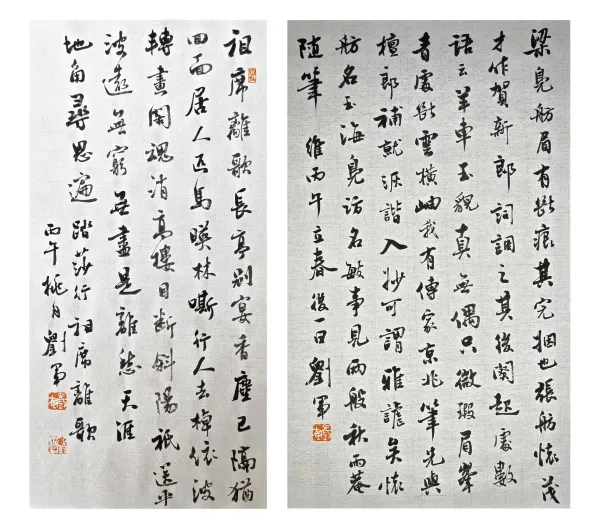 祖席離歌長亭别宴香塵已隔猶
回面居人匹馬暎林嘶行人去棹依波
轉畫閣魂消高樓目斷斜陽祇送平
波遠無窮無盡是離愁天涯
地角尋思遍 踏莎行祖席離歌
丙午桃月劉軍
梁晃舫眉有斷痕其也張舫懷茂
才作賀新郎詞調之其後闋起處數
語云羊車玉貌真無偶只微瑕眉峯
青處斷雲橫岫我有傳家京兆筆先與
檀郎補就詼諧入妙可謂雅謔矣懷
舫名玉海晃舫名敏事見兩般秋雨盦
随筆 維丙午立春後一日劉軍